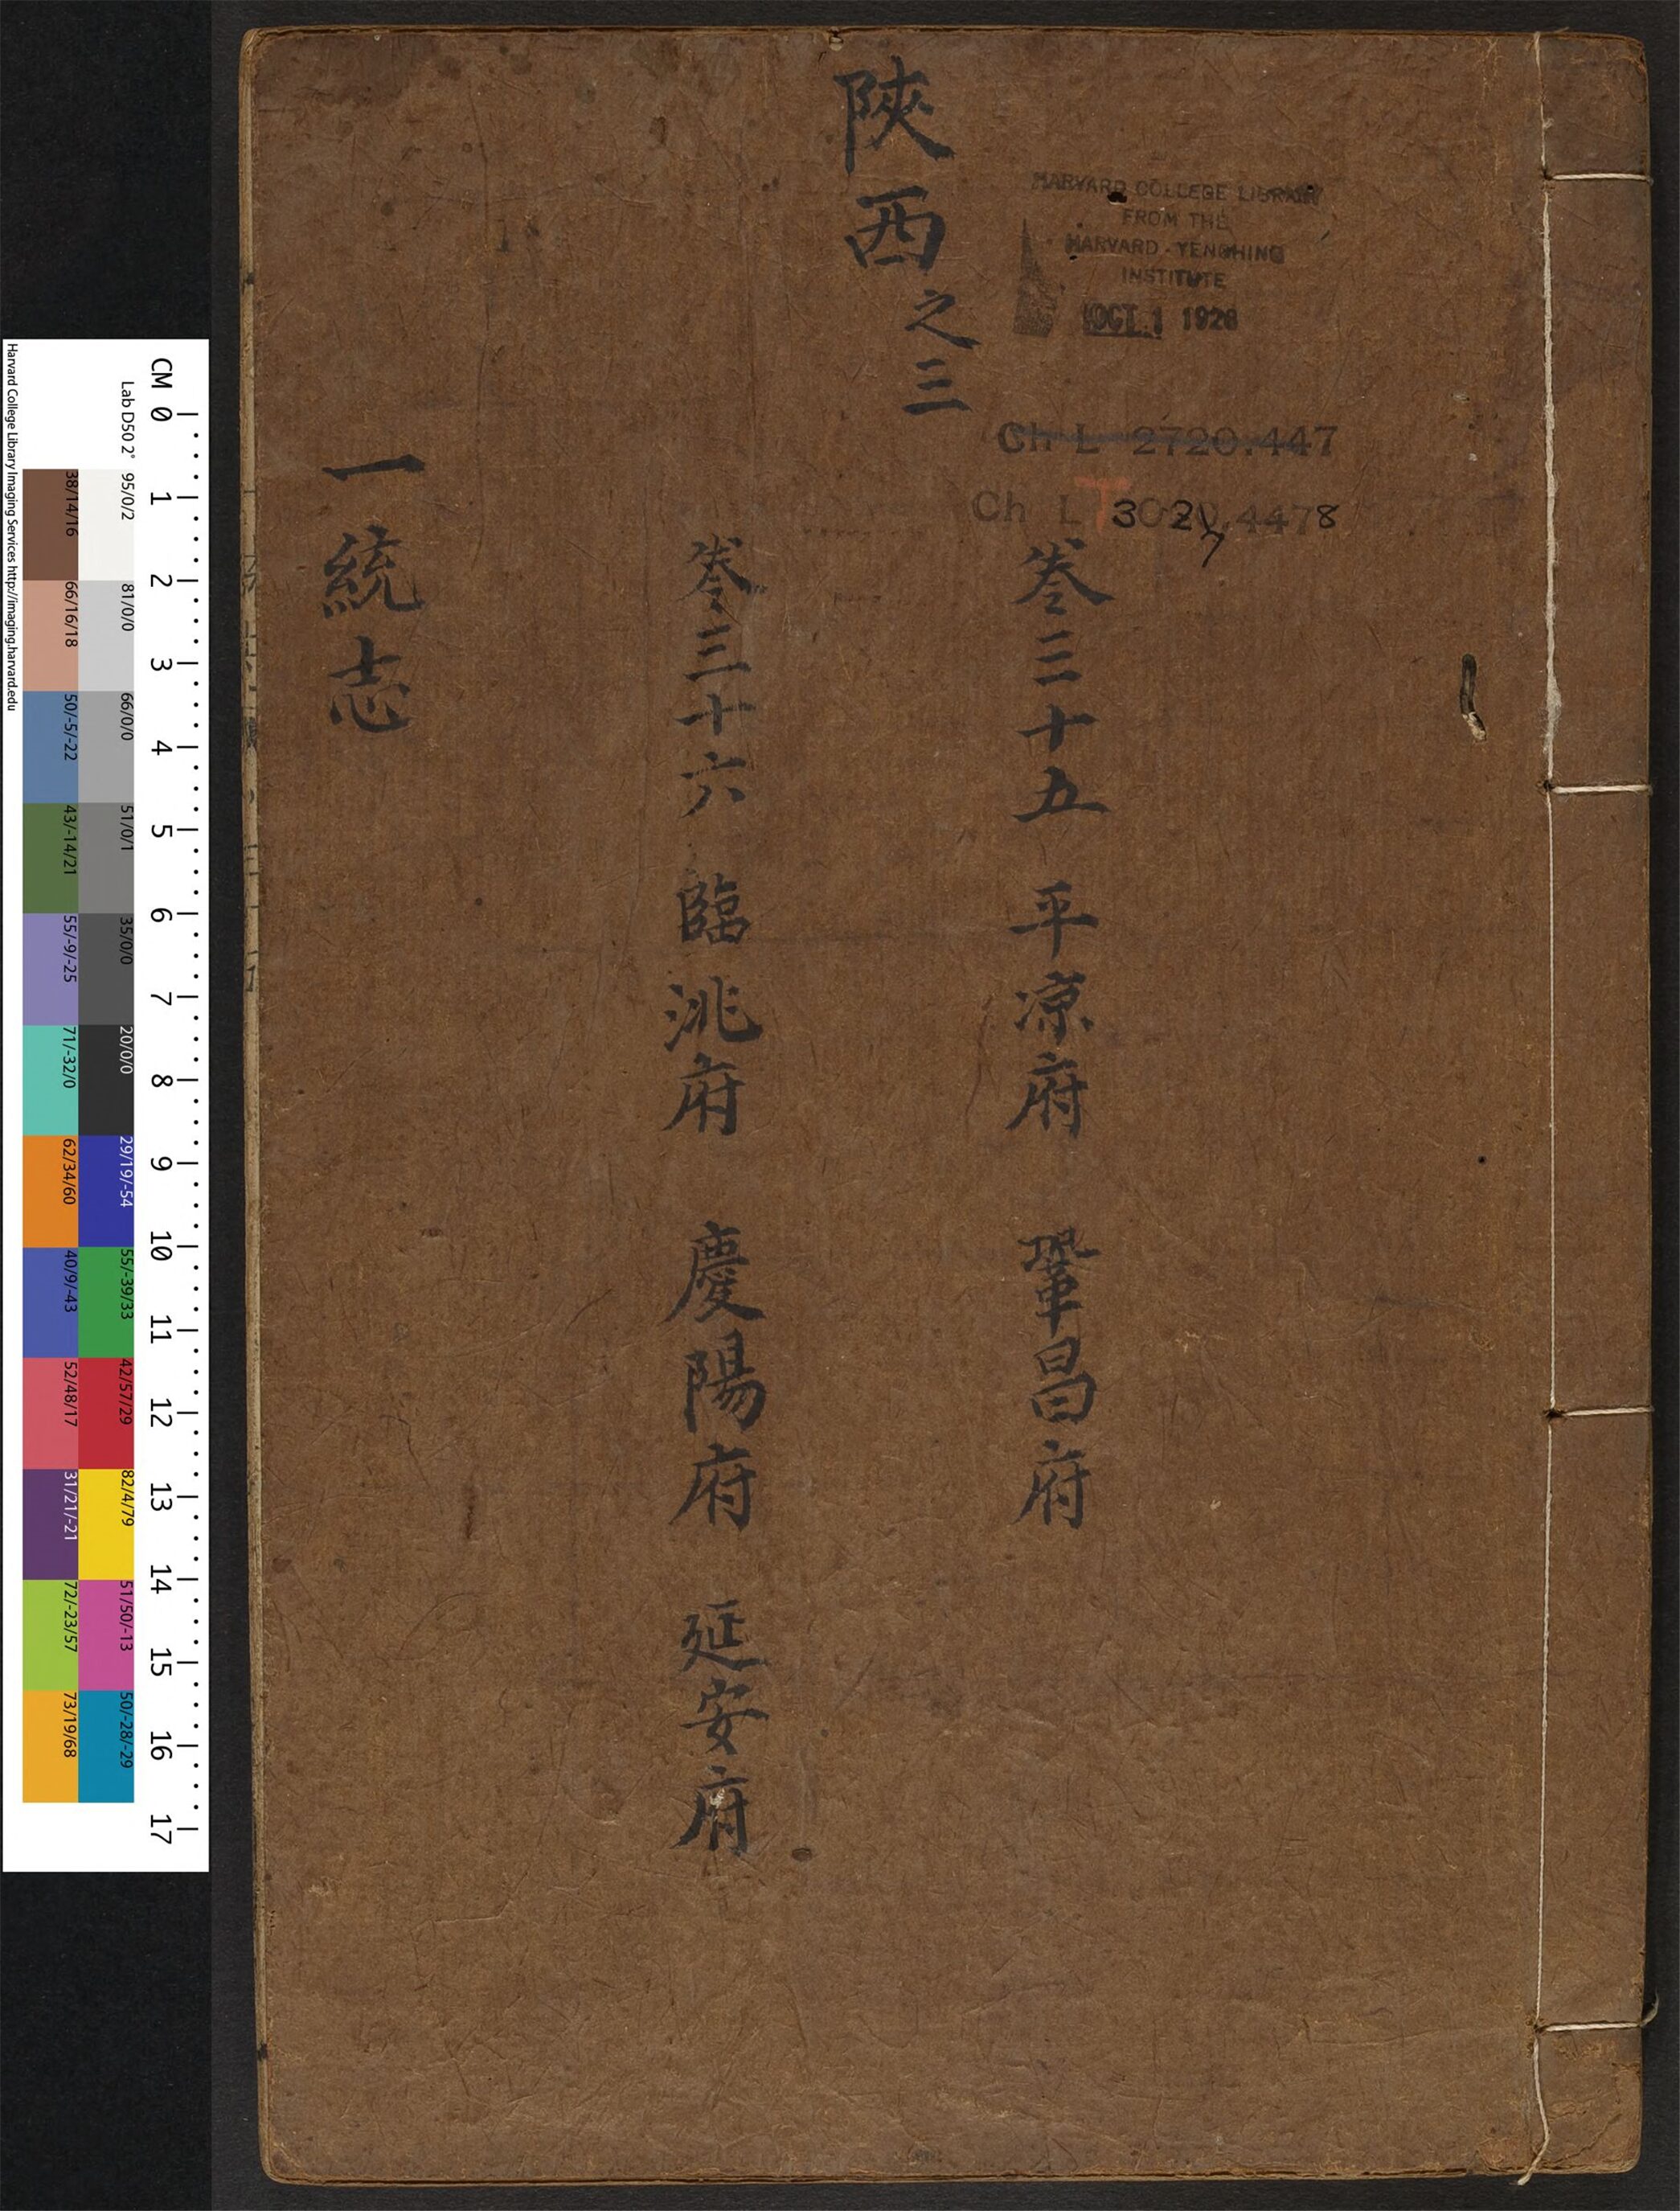 陝西之三
HARVARD COLLEGE LIBRARY
FROM THE
HARVARD-YENCHING
INSTITUTE
OCT 1 1928
Ch L 2720.447
Ch L T 3020.4478
卷三十五 平凉府 鞏昌府
卷三十六 臨洮府 慶陽府 延安府
一統志
CM 0 1 2 3 4 5 6 7 8 9 10 11 12 13 14 15 16 17
Lab D50 2° 95/0/2 81/0/0 66/0/0 51/0/1 35/0/0 20/0/0 29/19/-54 55/-39/33 42/57/29 82/4/79 51/50/-13 50/-28/-29
38/14/16 66/16/18 50/-5/-22 43/-14/21 55/-9/-25 71/-32/0 62/34/60 40/9/-43 52/48/17 31/21/-21 72/-23/57 73/19/68
Harvard College Library Imaging Services http://imaging.harvard.edu